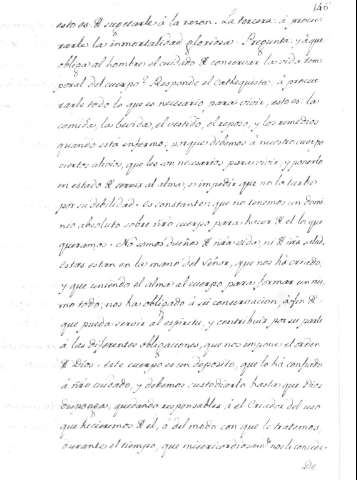 146
esto es de sugetarle à la razon. La tercera à procu-
rarle la inmortalidad gloriosa. Pregunta: y à que
obliga al hombre el cuidado de conservar la vida tem-
poral del cuerpo? Responde el Cathequista: à procu-
rarle todo lo que es necesario para vivir, esto es: la
comida, la bevida, el vestido, el reposo, y los remedios
quando està enfermo; porque debemos à nuestro cuerpo
ciertos alivios, que les son necesarios para vivir, y ponerlo
en estado de servir al alma, è impedir que no la turbe
por su debilidad. Es constante, que no tenemos un domi-
nio absoluto sobre nro cuerpo, para hacer de el lo que
queramos. No somos dueños de nra vida, ni de nra salud,
estas estan en la mano del Señor, que nos ha creado,
y que uniendo el alma al cuerpo, para formar un mis-
mo todo, nos ha obligado à su conservacion, à fin de
que pueda servir al espiritu, y contribuir por su parte
à las diferentes obligaciones, que nos impone el orden
de Dios. Este cuerpo es un deposito, que lo ha confiado
à nro cuidado, y debemos custodiarlo hasta que Dios
disponga, quedando responsables à el Criador del uso
que hicieremos de el, ò del modo con que le tratemos
durante el tiempo, que misericordiosamte nos le concede.
De